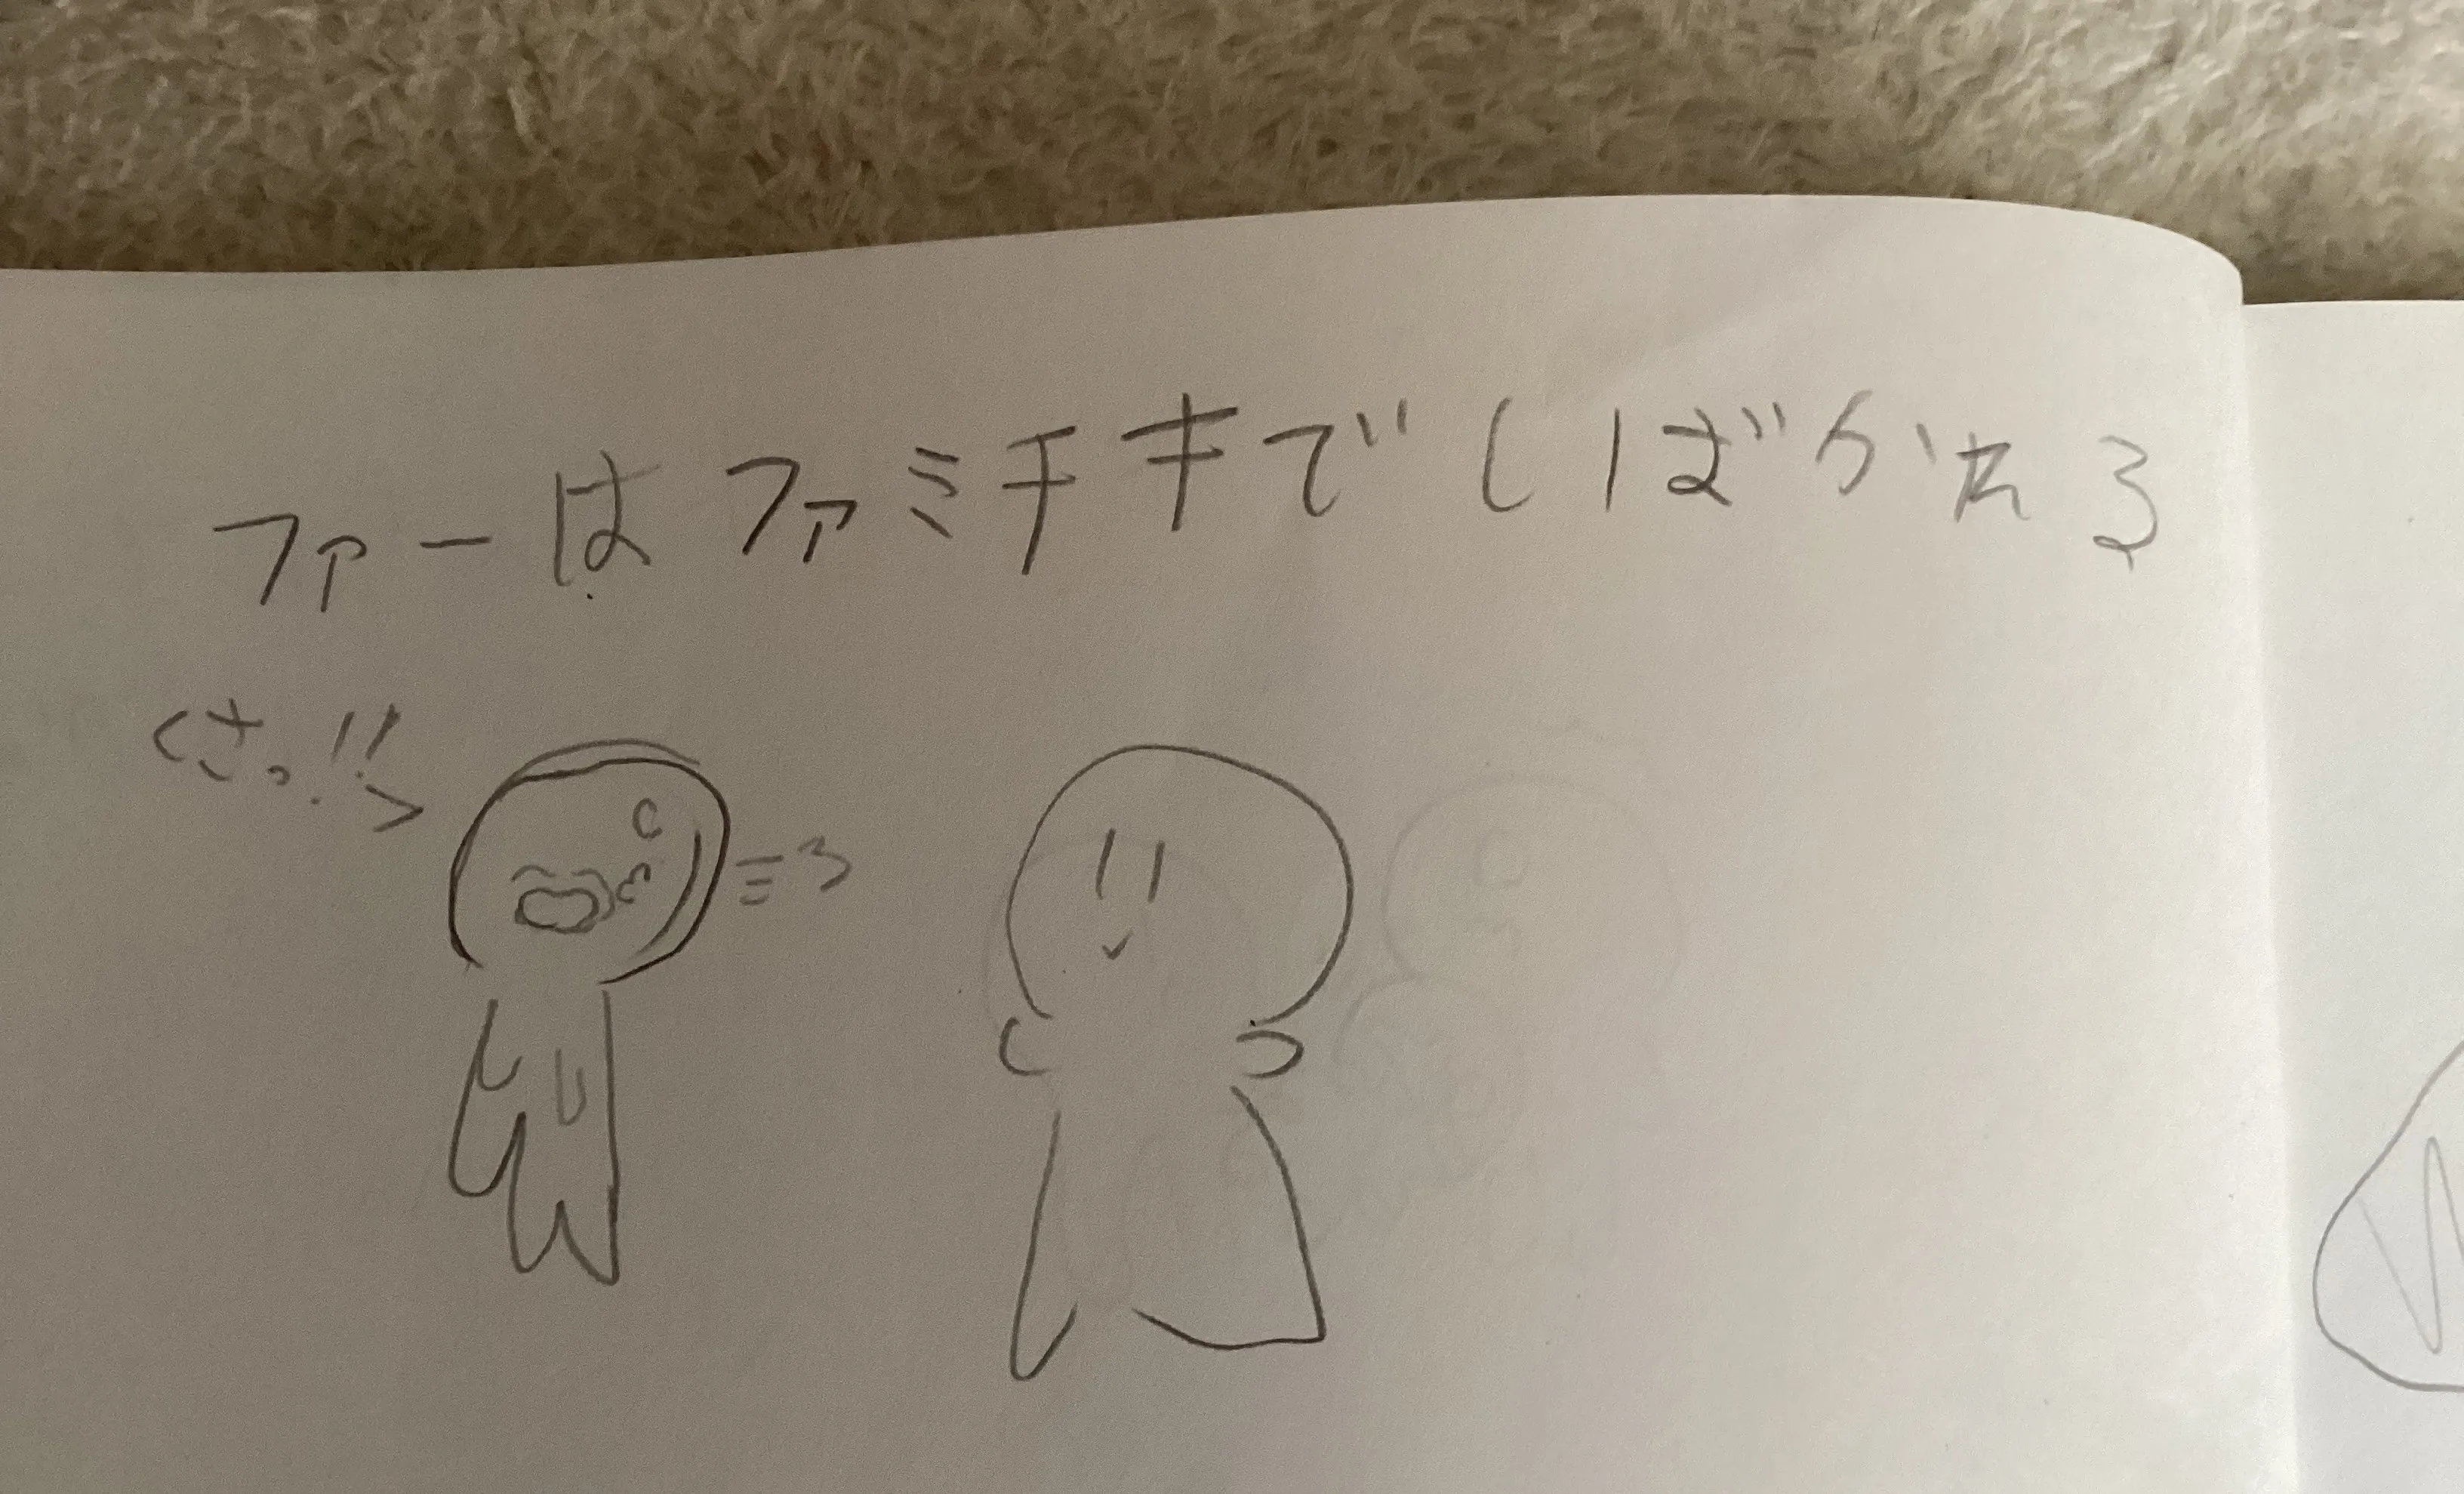 ファーはファミチキでしばかれる
くさっ!!